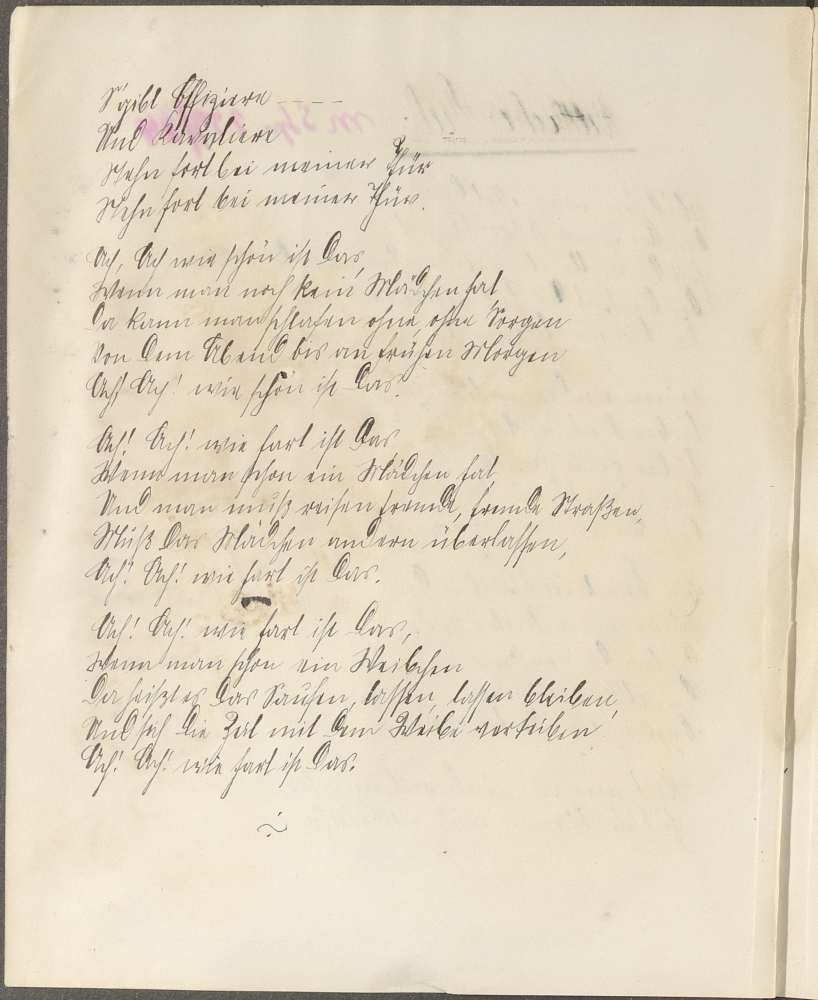 S'gibt Offiziere - - - -
Und Kavaliere
Stehn fort bei meiner Thür
Stehn fort bei meiner Thür.
Ach, Ach wie schön ist das,
Wenn man noch kein Mädchen hat
Da kann man schlafen ohne, ohne Sorgen
Von dem Abend bis an frühen Morgen
Ach! Ach! wie schön ist das!
Ach! Ach! wie hart ist das,
Wenn man schon ein Mädchen hat,
Und man muß reisen fremde, fremde Straßen,
Muß das Mädchen andern überlassen,
Ach! Ach! wie hart ist das.
Ach! Ach! wie hart ist das,
Wenn man schon ein Weibchen
Da heißt es das Saufen, lassen, lassen bleiben,
Und sich die Zeit mit dem Weibe verteiben!
Ach! Ach! wie hart ist das.